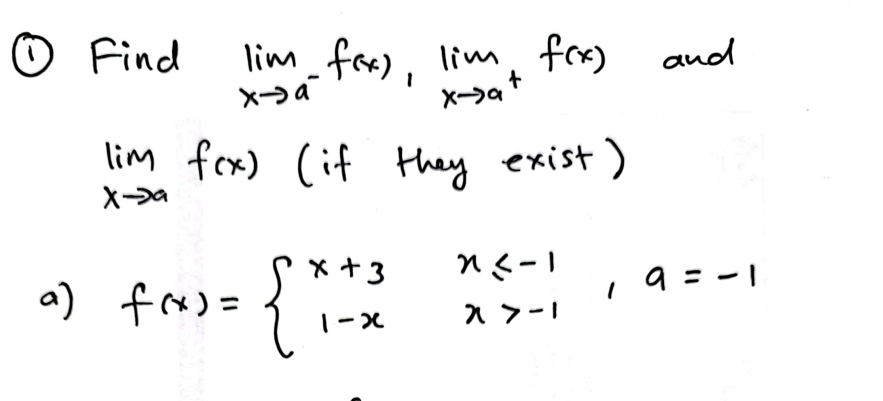 ① Find lim x→a⁻ f(x), lim x→a⁺ f(x) and
lim x→a f(x) (if they exist)
a) f(x) = { x + 3 x ≤ -1 , a = -1
1 - x x > -1